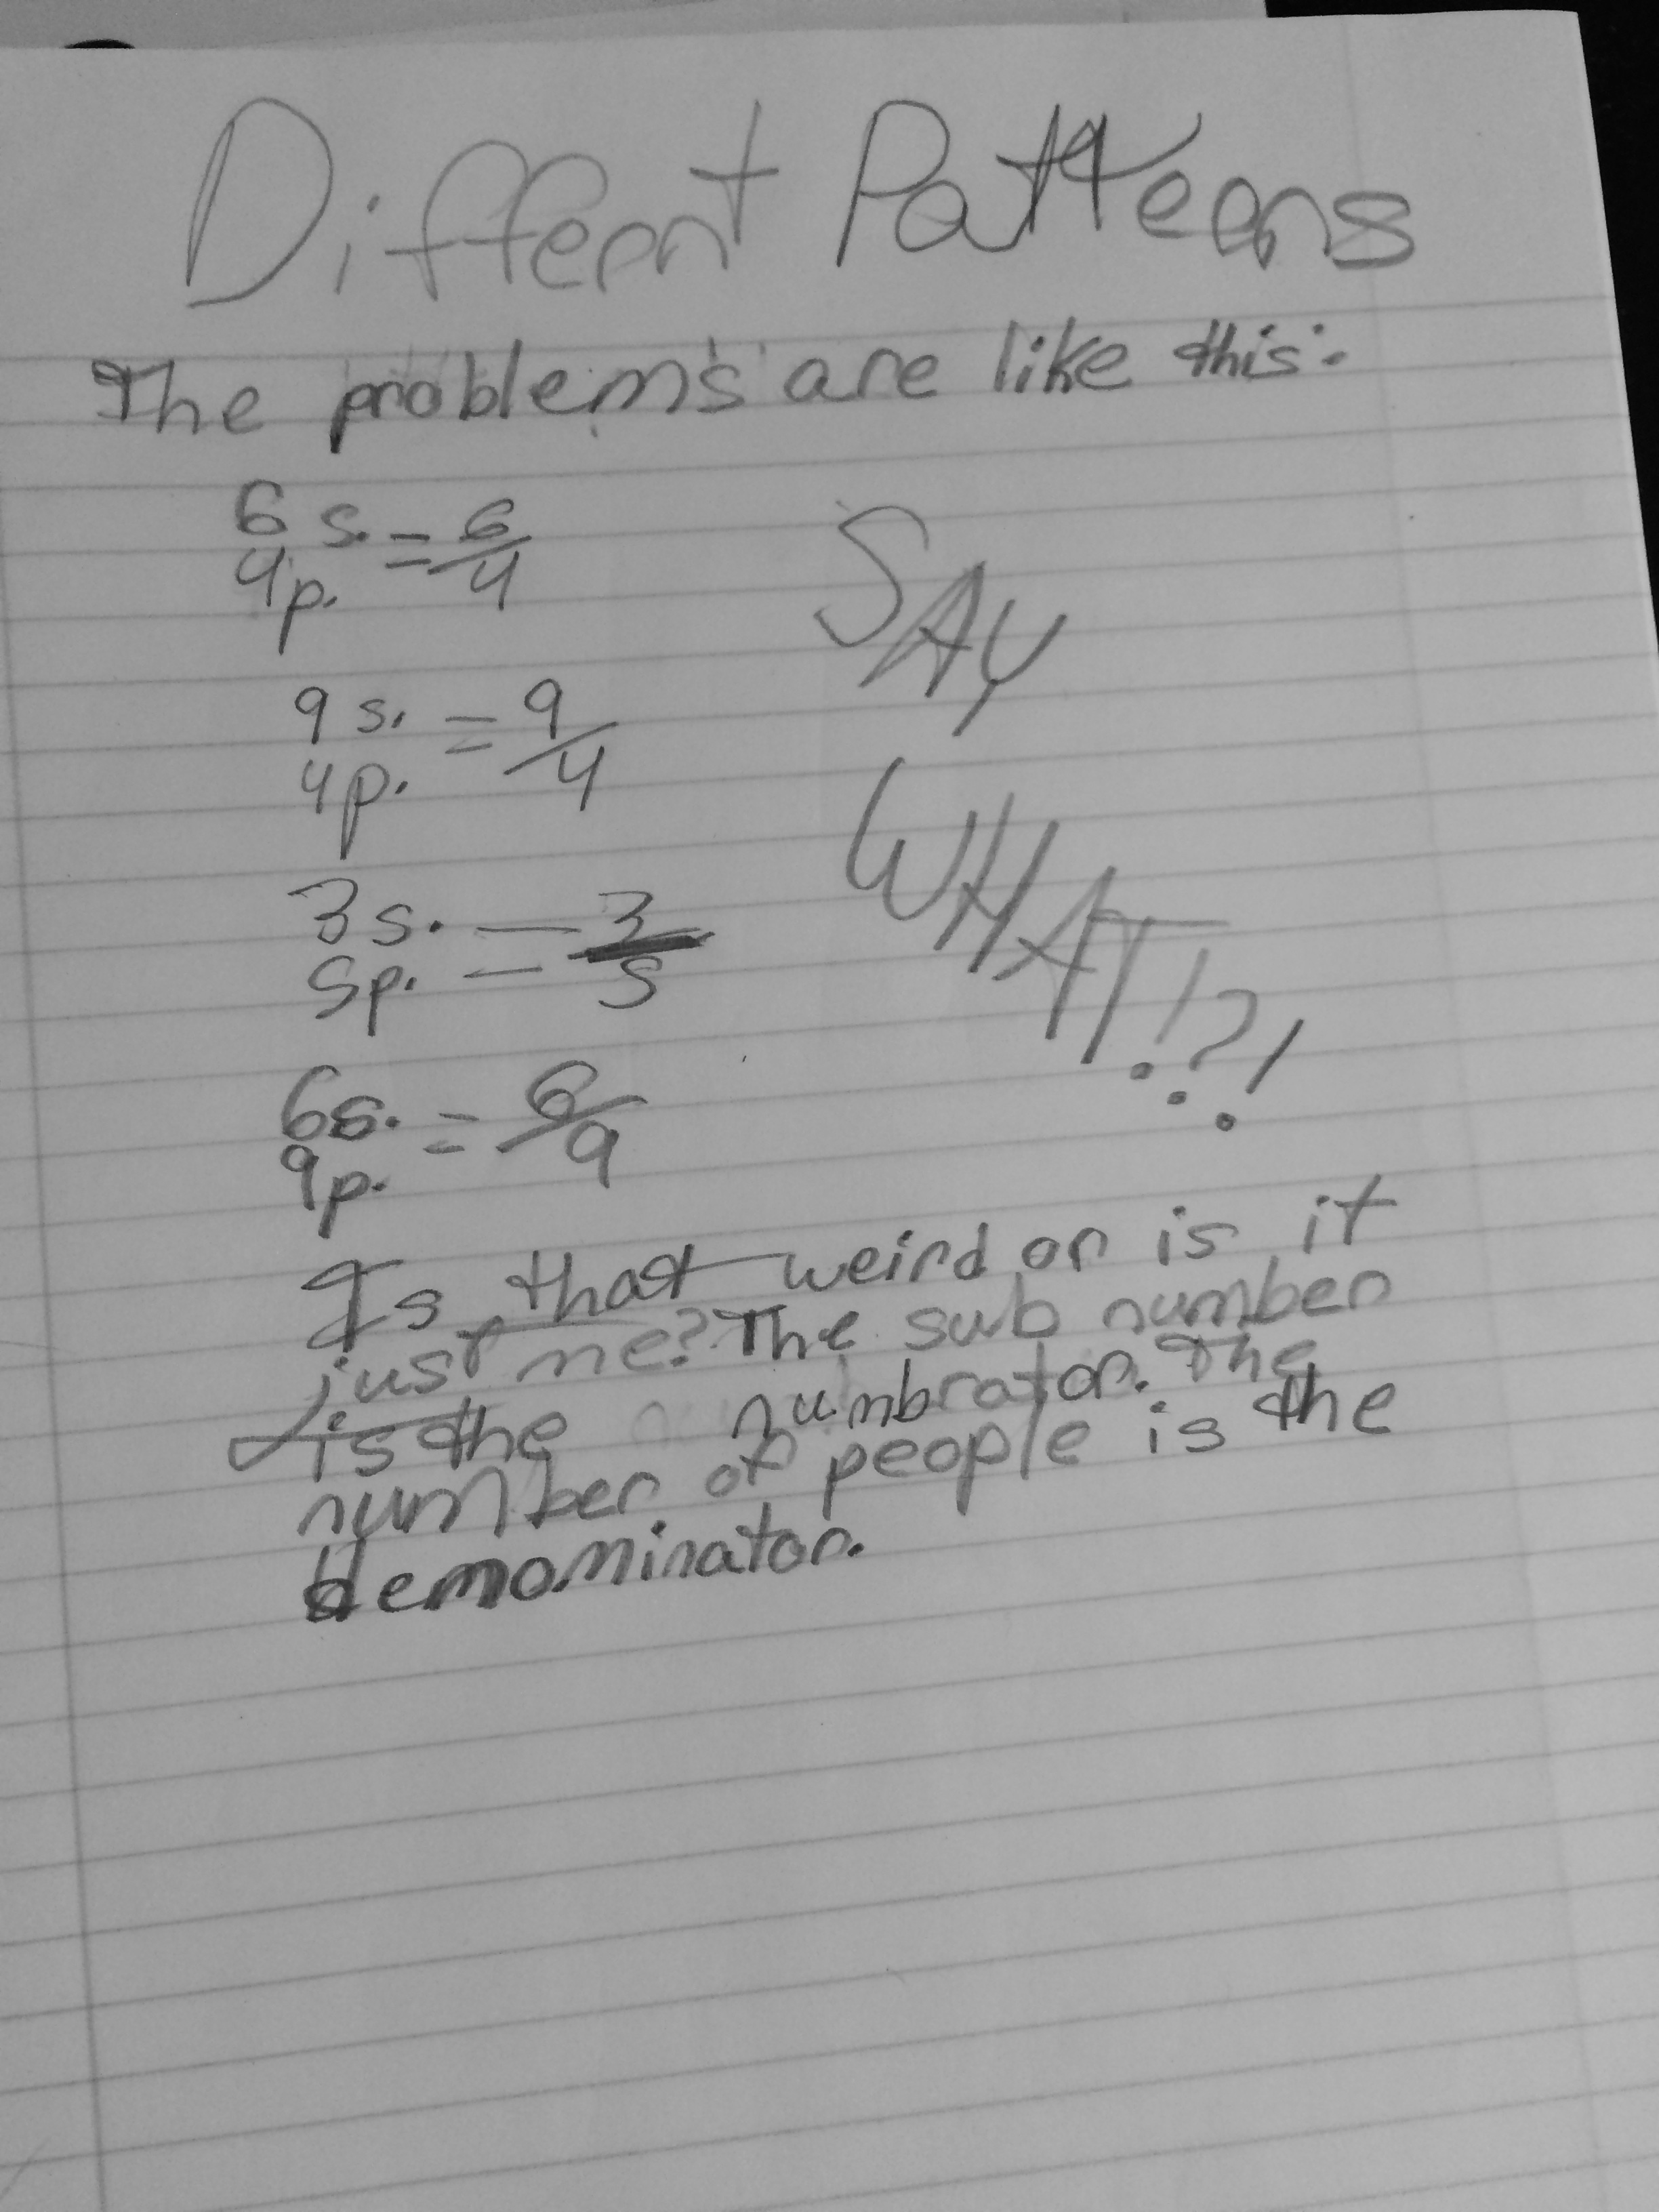 Differnt Patterns
The problem's are like this:
6 s. = 6/4
4p.
SAY
9 s. = 9/4
4p.
WHAT!?!
3 s. = 3/5
5p.
6s. = 6/9
9p.
Is that weird or is it
just me? The sub number
is the numbrator. The
number of people is the
demominator.